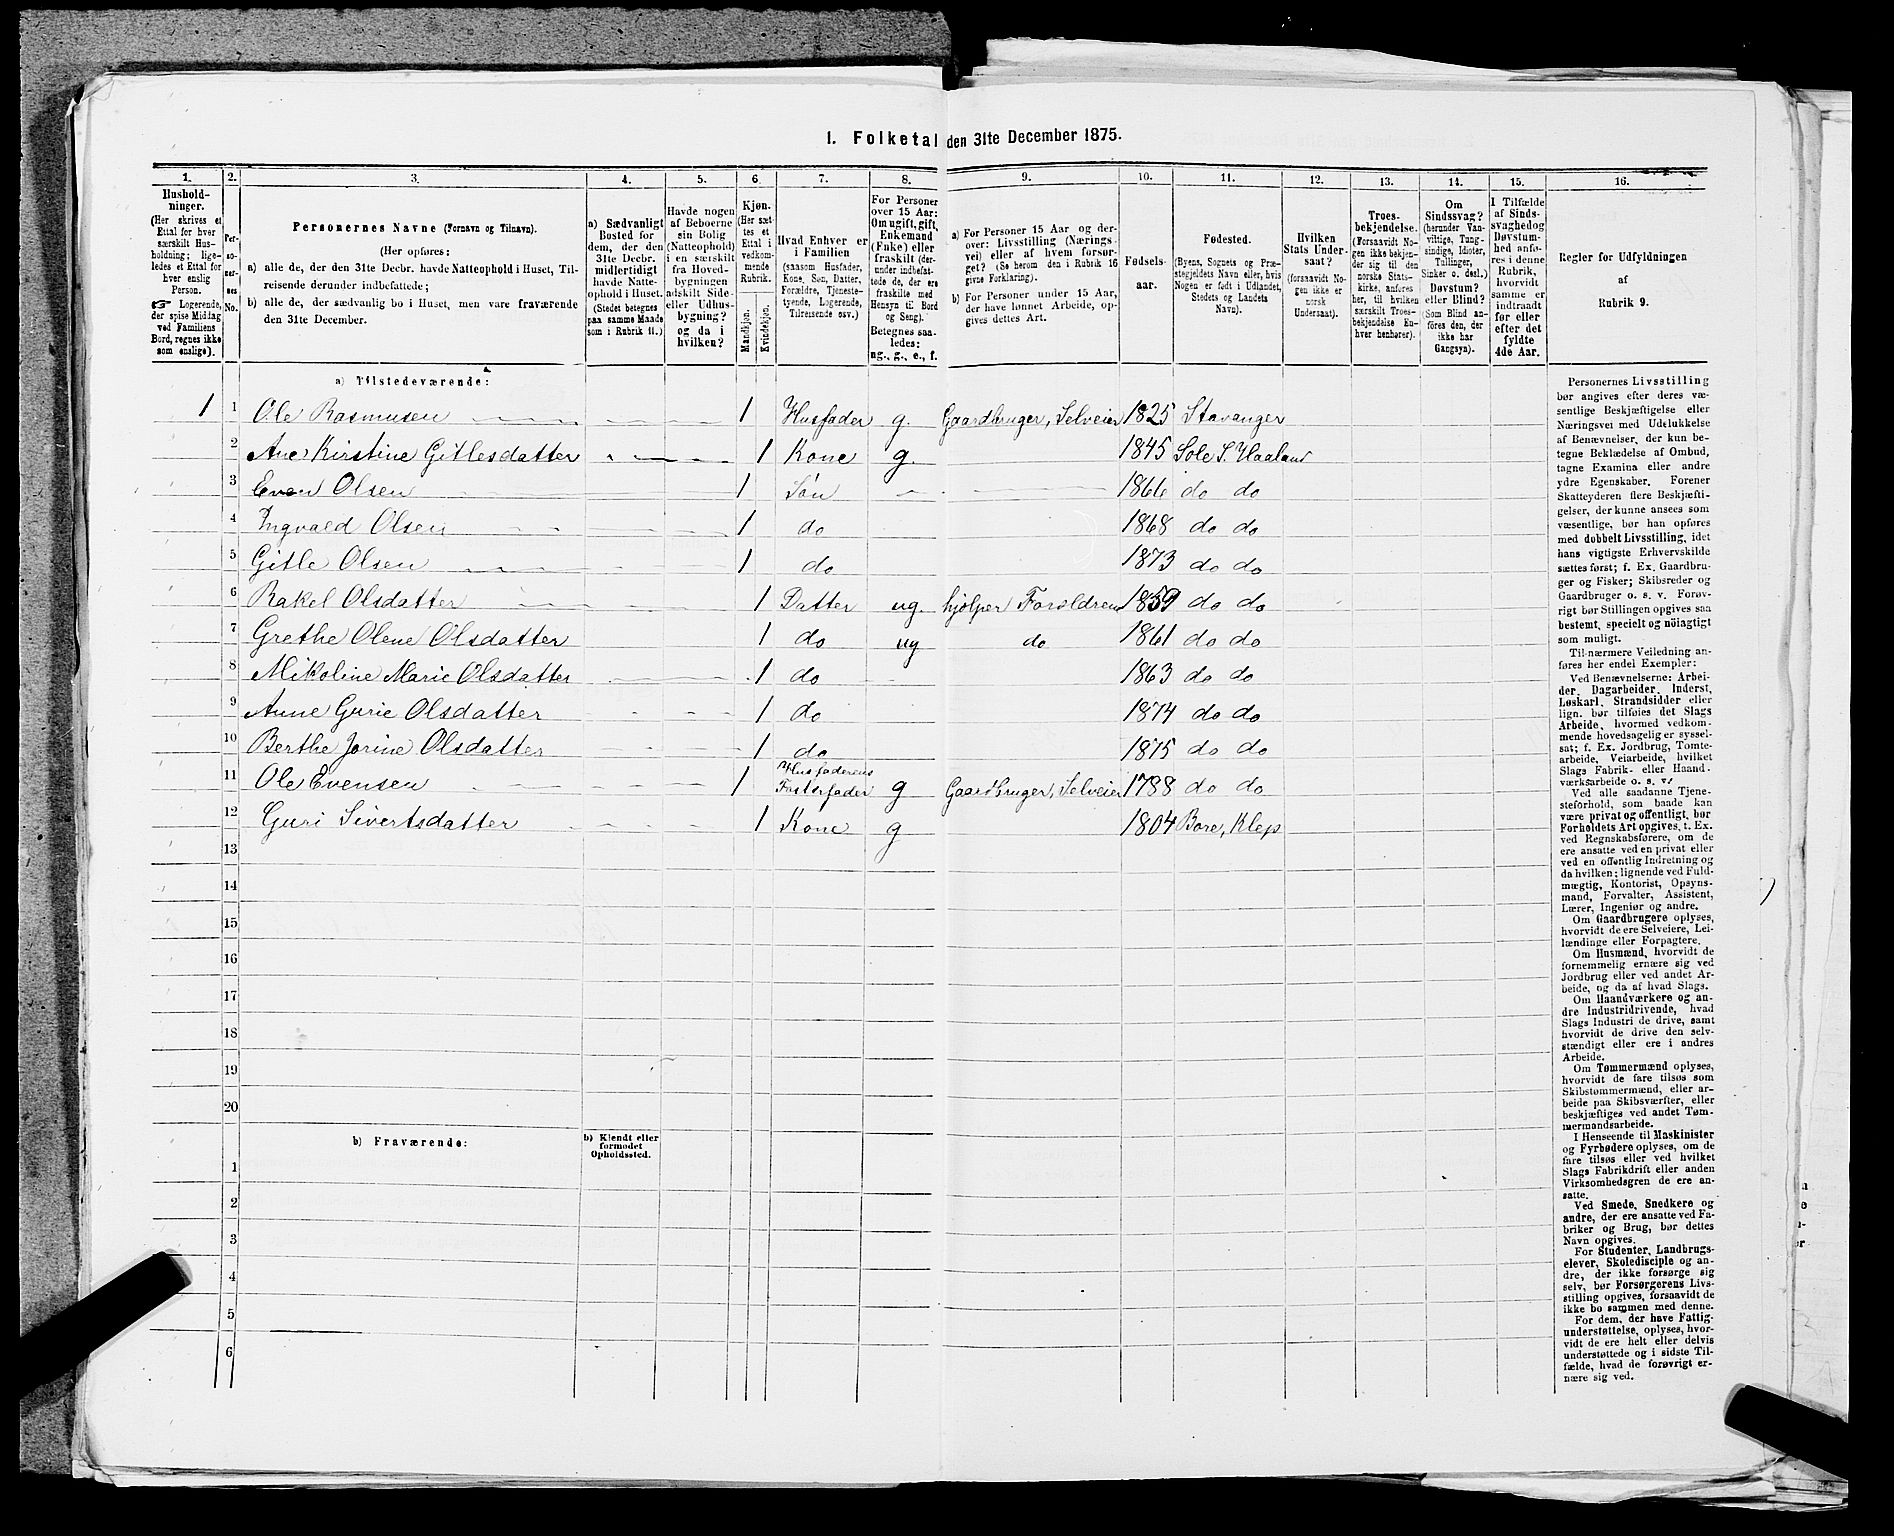 1. Folketal den 31te December 1875.
1. 2. 3. 4. 5. 6. 7. 8. 9. 10. 11. 12. 13. 14. 15. 16.
Hushold-
ninger.
(Her skrives et
Ettal for hver
særskilt Hus-
holdning; lige-
ledes et Ettal for
hver enslig
Person.
☞ Logerende,
der spise Middag
ved Familiens
Bord, regnes ikke
som enslige).
Per-
so-
ner-
nes
No.
Personernes Navne (Fornavn og Tilnavn).
(Her opføres:
a) alle de, der den 31te Decbr. havde Natteophold i Huset, Til-
reisende derunder indbefattede;
b) alle de, der sædvanlig bo i Huset, men vare fraværende
den 31te December.
a) Sædvanligt
Bosted for
dem, der den
31te Decbr.
midlertidigt
havde Natte-
ophold i Huset.
(Stedet betegnes
paa samme Maade
som i Rubrik 11.)
Havde nogen
af Beboerne
sin Bolig
(Natteophold)
i en særskilt
fra Hoved-
bygningen
adskilt Side-
eller Udhus-
bygning?
og da i
hvilken?
Kjøn.
(Her sæt-
tes et
Ettal i
vedkom-
mende
Rubrik.)
Mandkjøn.
Kvindekjøn.
Hvad Enhver er
i Familien
(saasom Husfader,
Kone, Søn, Datter,
Forældre, Tjeneste-
tyende, Logerende,
Tilreisende osv.)
For Personer
over 15 Aar:
Om ugift, gift,
Enkemand
(Enke) eller
fraskilt (der-
under indbefat-
tede de, der ere
fraskilte med
Hensyn til Bord
og Seng).
Betegnes saa-
ledes:
ug., g., e., f.
a) For Personer 15 Aar og der-
over: Livsstilling (Nærings-
vei) eller af hvem forsør-
get? (Se herom den i Rubrik 16
givne Forklaring).
b) For Personer under 15 Aar,
der have lønnet Arbeide, op-
gives dettes Art.
Fødsels-
aar.
Fødested.
(Byens, Sognets og Præ-
stegjeldets Navn eller, hvis
Nogen er født i Udlandet,
Stedets og Landets
Navn).
Hvilken
Stats Under-
saat?
(forsaavidt No-
gen ikke er
norsk
Undersaat).
Troes-
bekjendelse.
(Forsaavidt No-
gen ikke bekjen-
der sig til den
norske Stats-
kirke, anføres
her, til hvilken
særskilt Troes-
bekjendelse En-
hver henhører).
Om
Sindssvag?
(herunder Van-
vittige, Tung-
sindige, Idioter,
Tullinger,
Sinker o. desl.)
Døvstum?
eller Blind?
(Som Blind an-
føres den, der
ikke har
Gangsyn).
I Tilfælde
af Sinds-
svaghed og
Døvstum-
hed anfø-
res i denne
Rubrik,
hvorvidt
samme er
indtraadt
før eller
efter det
fyldte
4de Aar.
Regler for Udfyldningen
af
Rubrik 9.
a) Tilstedeværende:
1 1 Ole Rasmusen 1 Husfader g. Gaardbruger, Selveier 1825 Stavanger
2 Ane Kirstine Gitlesdatter 1 Kone g. 1845 Sole S. Haaland
3 Even Olsen 1 Søn 1866 do do
4 Ingvald Olsen 1 do 1868 do do
5 Gitle Olsen 1 do 1873 do do
6 Rakel Olsdatter 1 Datter ug. hjælper Forældrene 1859 do do
7 Grethe Olene Olsdatter 1 do ug do 1861 do do
8 Mikoline Marie Olsdatter 1 do 1863 do do
9 Anne Gurie Olsdatter 1 do 1874 do do
10 Berthe Jorine Olsdatter 1 do 1875 do do
11 Ole Evensen 1 Husfaderens Fosterfader g Gaardbruger, Selveier 1788 do do
12 Guri Sivertsdatter 1 Kone g 1804 Bore, Klep
13
14
15
16
17
18
19
20
b) Fraværende:
b) Kjendt eller
formodet
Opholdssted.
1
2
3
4
5
6
Personernes Livsstilling
bør angives efter deres væ-
sentlige Beskjæftigelse eller
Næringsvei med Udelukkelse
af Benævnelser, der kun be-
tegne Beklædelse af Ombud,
tagne Examina eller andre
ydre Egenskaber. Forener
Skatteyderen flere Beskjæfti-
gelser, der kunne ansees som
væsentlige, bør han opføres
med dobbelt Livsstilling, idet
hans vigtigste Erhvervskilde
sættes først; f. Ex. Gaardbru-
ger og Fisker; Skibsreder og
Gaardbruger o. s. v. Forøv-
rigt bør Stillingen opgives saa
bestemt, specielt og nøiagtigt
som muligt.
Til nærmere Veiledning an-
føres her endel Exempler:
Ved Benævnelserne: Arbei-
der, Dagarbeider, Inderst,
Løskarl, Strandsidder eller
lign. bør tilføies det Slags
Arbeide, hvormed vedkom-
mende hovedsagelig er syssel-
sat; f. Ex. Jordbrug, Tomte-
arbeide, Veiarbeide, hvilket
Slags Fabrik- eller Haand-
værksarbeide o. s. v.
Ved alle saadanne Tjene-
steforhold, som baade kan
være privat og offentligt, bør
Forholdets Art opgives, t. Ex.
ved Regnskabsførere, om de
ere ansatte ved en privat eller
ved en offentlig Indretning og
da hvilken; lignende ved Fuld-
mægtig, Kontorist, Opsyns-
mand, Forvalter, Assistent,
Lærer, Ingeniør og andre.
Om Gaardbrugere oplyses,
hvorvidt de ere Selveiere, Lei-
lændinge eller Forpagtere.
Om Husmænd, hvorvidt de
fornemmelig ernære sig ved
Jordbrug eller ved andet Ar-
beide, og da af hvad Slags.
Om Haandværkere og an-
dre Industridrivende, hvad
Slags Industri de drive, samt
hvorvidt de drive den selv-
stændigt eller ere i andres
Arbeide.
Om Tømmermænd oplyses,
hvorvidt de fare tilsøs som
Skibstømmermænd, eller ar-
beide paa Skibsværfter, eller
beskjæftiges ved andet Tøm-
mermandsarbeide.
I Henseende til Maskinister
og Fyrbødere oplyses, om de
fare tilsøs eller ved hvilket
Slags Fabrikdrift eller anden
Virksomhedsgren de ere an-
satte.
Ved Smede, Snedkere og
andre, der ere ansatte ved Fa-
briker og Brug, bør dettes
Navn opgives.
For Studenter, Landbrugs-
elever, Skoledisciple og an-
dre, der ikke forsørge sig
selv, bør Forsørgerens Livs-
stilling opgives, forsaavidt de
ikke bo sammen med denne.
For dem, der have Fattig-
understøttelse, oplyses, hvor-
vidt de ere helt eller delvis
understøttede og i sidste Til-
fælde, hvad de forøvrigt er-
nære sig ved.